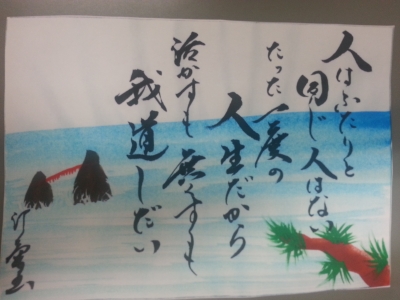 人はふたりと
同じ人はない
たった一度の
人生だから
活かすも無くすも
我道しだい